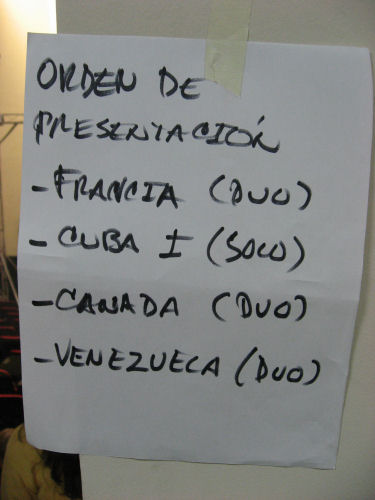 ORDEN DE
PRESENTACIÓN
-FRANCIA (DUO)
-CUBA I (SOLO)
-CANADA (DUO)
-VENEZUELA (DUO)